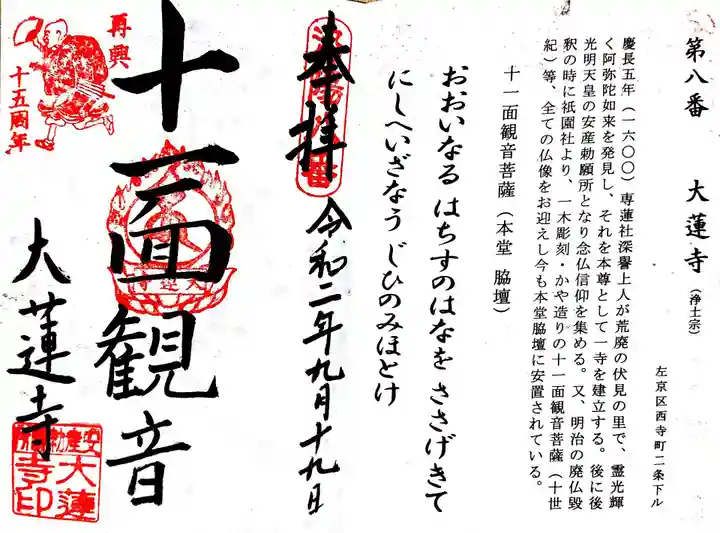 第八番　大蓮寺（浄土宗）
左京区西寺町二条下ル
慶長五年（一六〇〇）専蓮社深誉上人が荒廃の伏見の里で、霊光輝
く阿弥陀如来を発見し、それを本尊として一寺を建立する。後に後
光明天皇の安産勅願所となり念仏信仰を集める。又、明治の廃仏毀
釈の時に祇園社より、一木彫刻・かや造りの十一面観音菩薩（十世
紀）等、全ての仏像をお迎えし今も本堂脇壇に安置されている。
十一面観音菩薩（本堂　脇壇）
おおいなる はちすのはなを ささげきて
にしへいざなう じひのみほとけ
奉拝
令和二年九月十九日
十一面観音
大蓮寺
再興
十五周年
大蓮寺
安産勅願
大蓮
寺印